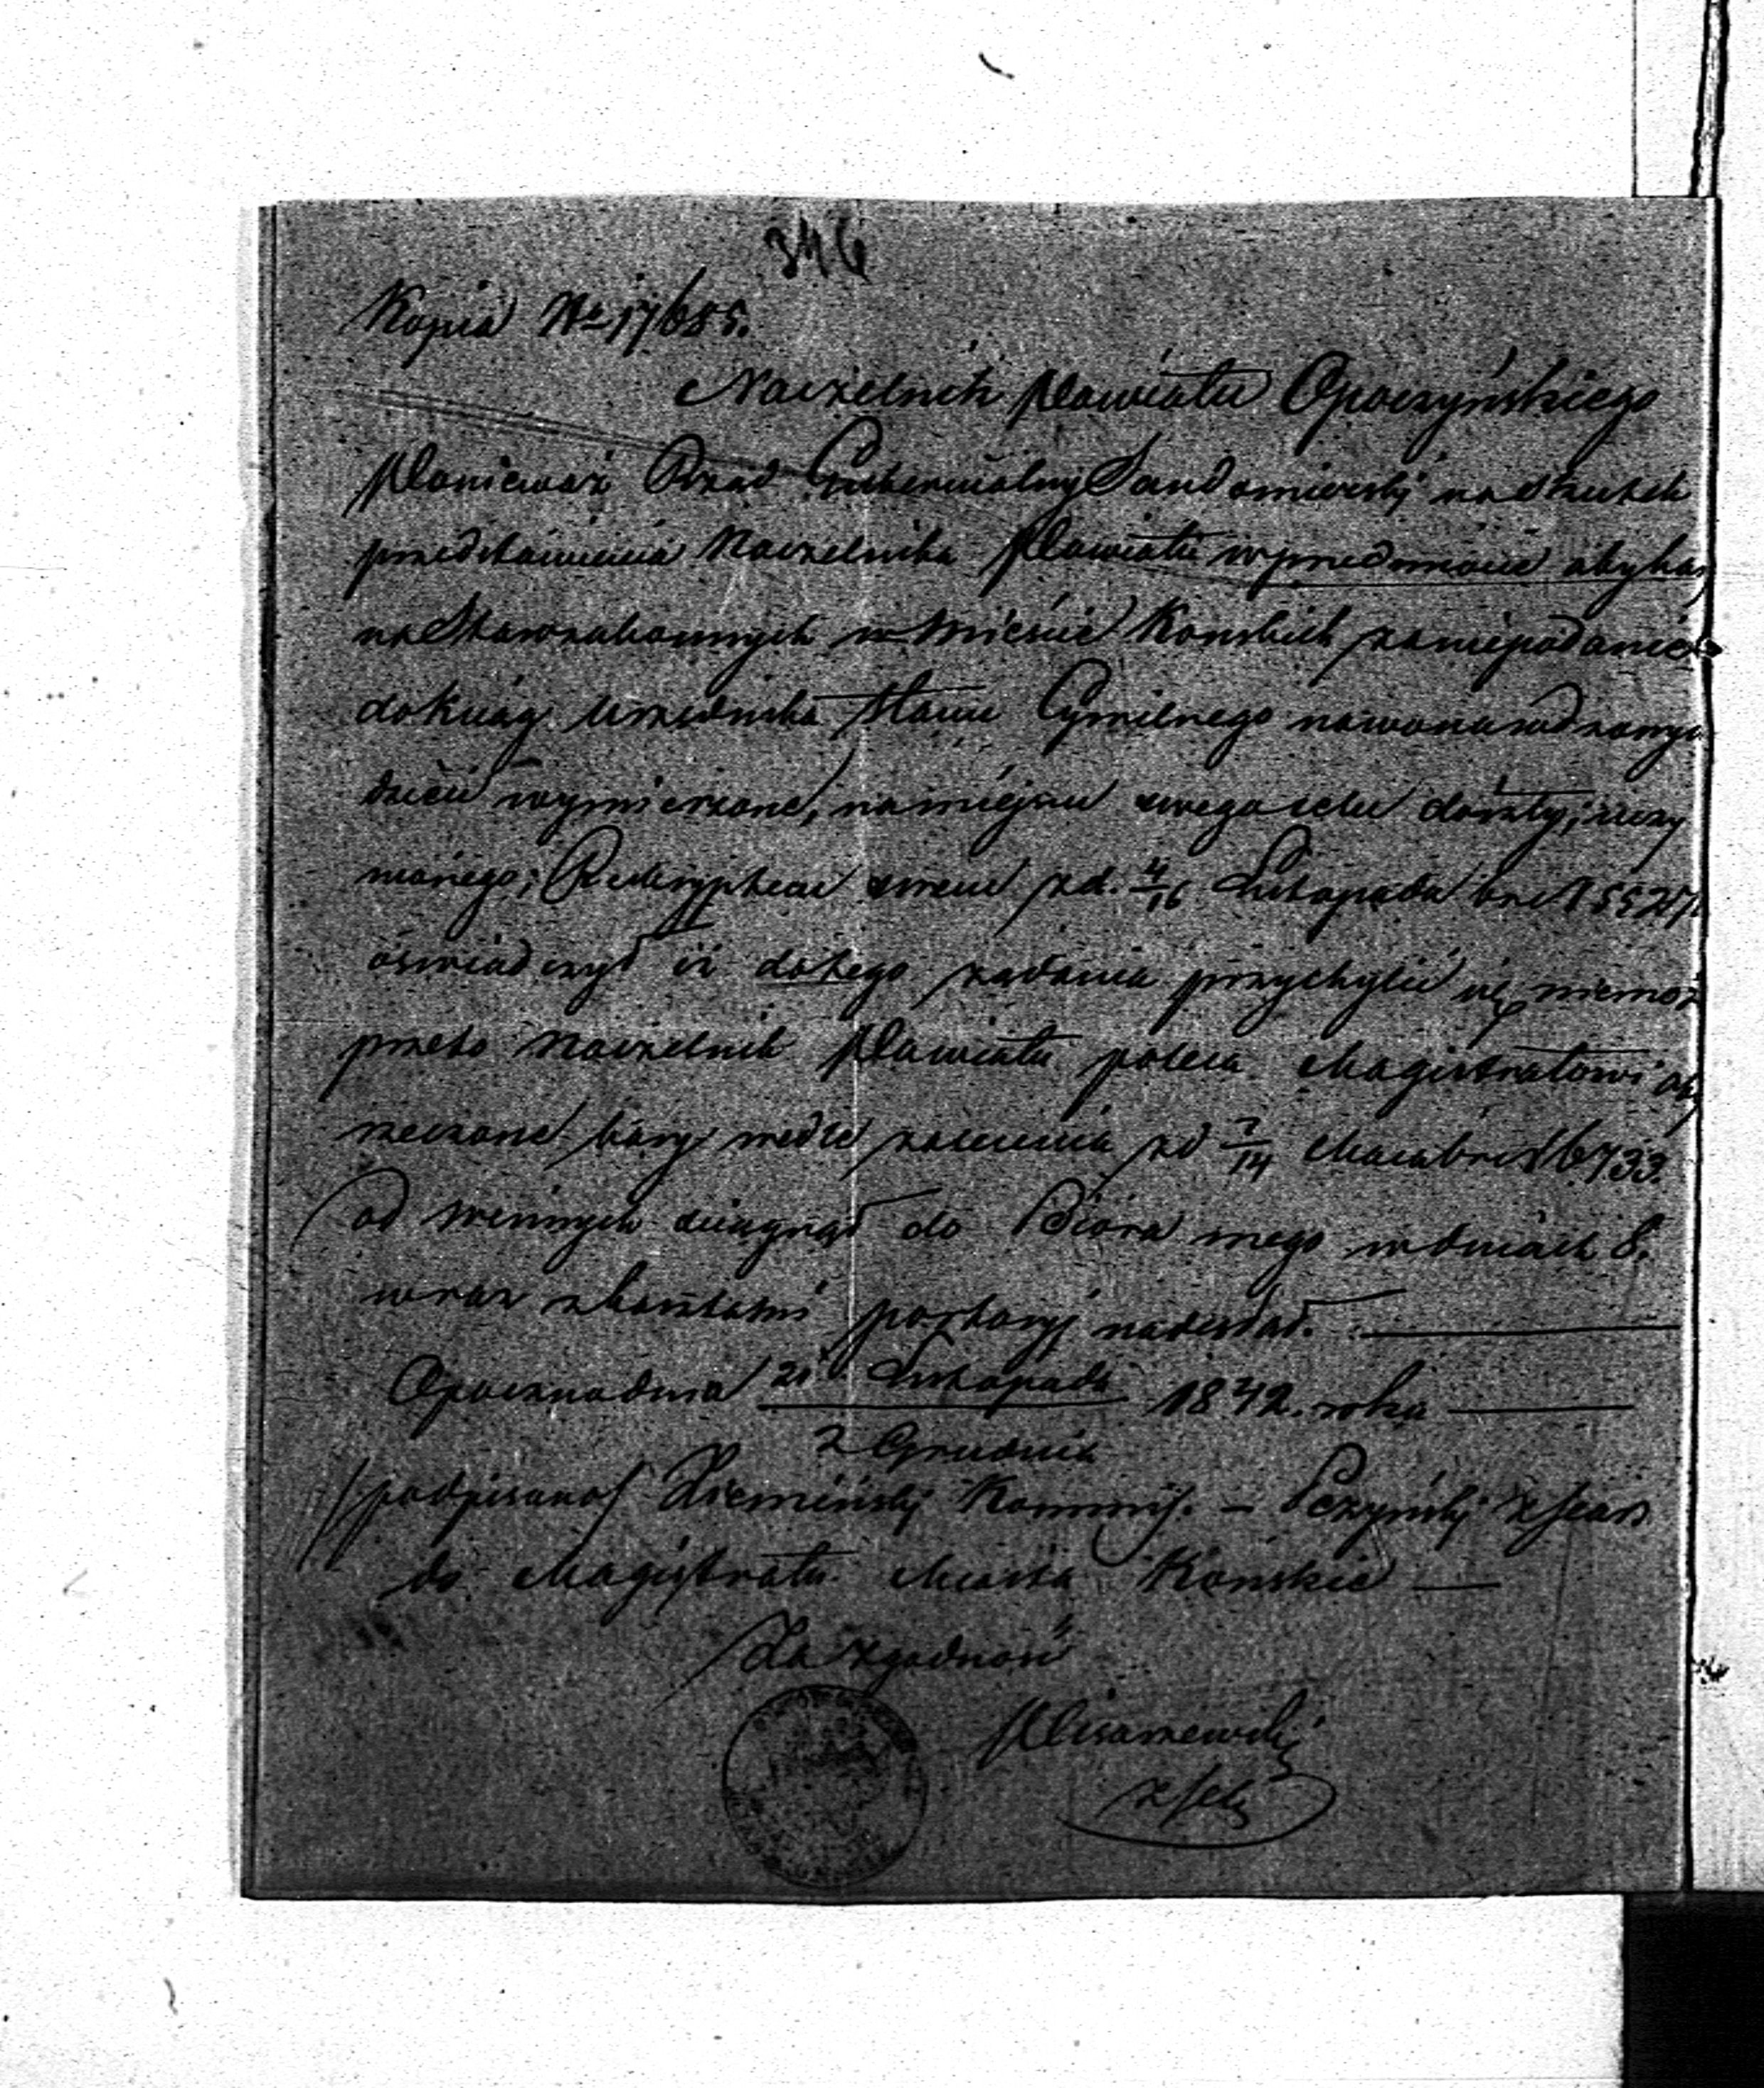 346
Kopia No 17685.
Naczelnik Powiatu Opoczyńskiego
Poniewarz Rząd Gubernialny Sandomierski na skutek
przedstawienia Naczelnika Powiatu w przedmiocie aby kary
na Starozakonnych w Mieście Konskich za niepodanie
do Ksiąg Urzednika Stanu Cywilnego nowonarodzonych
dzieci wymierzone, na miejscu swego celu doszły,
Reskryptem swem z d. 4/16 Listopada br
oświadczył iż do tego żadania przychylić się niemoż
przeto Naczelnik Powiatu poleca Magistratowi aby
rzeczone kary wedle zalecenia z d 2/14 Maia br 6733.
od winnych sciągnął do Biora mego w dniach 8.
wraz z kosztami portoryj nadesłał.
Opoczno dnia 21 Listopada 1842 roku
2 Grudnia
podpisano/ Ziemiński Kommiss. –
do Magistratu Miasta Konskie
Za zgodność